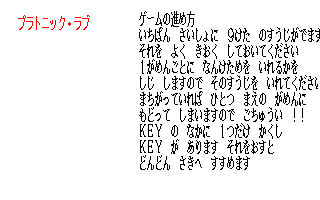 プラトニック・ラブ
ゲームの進め方
いちばん さいしょに 9けた のすうじがでます
それを よく きおく しておいてください
1がめんごとに なんけためを いれるかを
しじ しますので そのすうじを いれてください
まちがっていれば ひとつ まえの がめんに
もどって しまいますので ごちゅうい !!
KEY の なかに 1つだけ かくし
KEY が あります それをおすと
どんどん さきへ すすめます